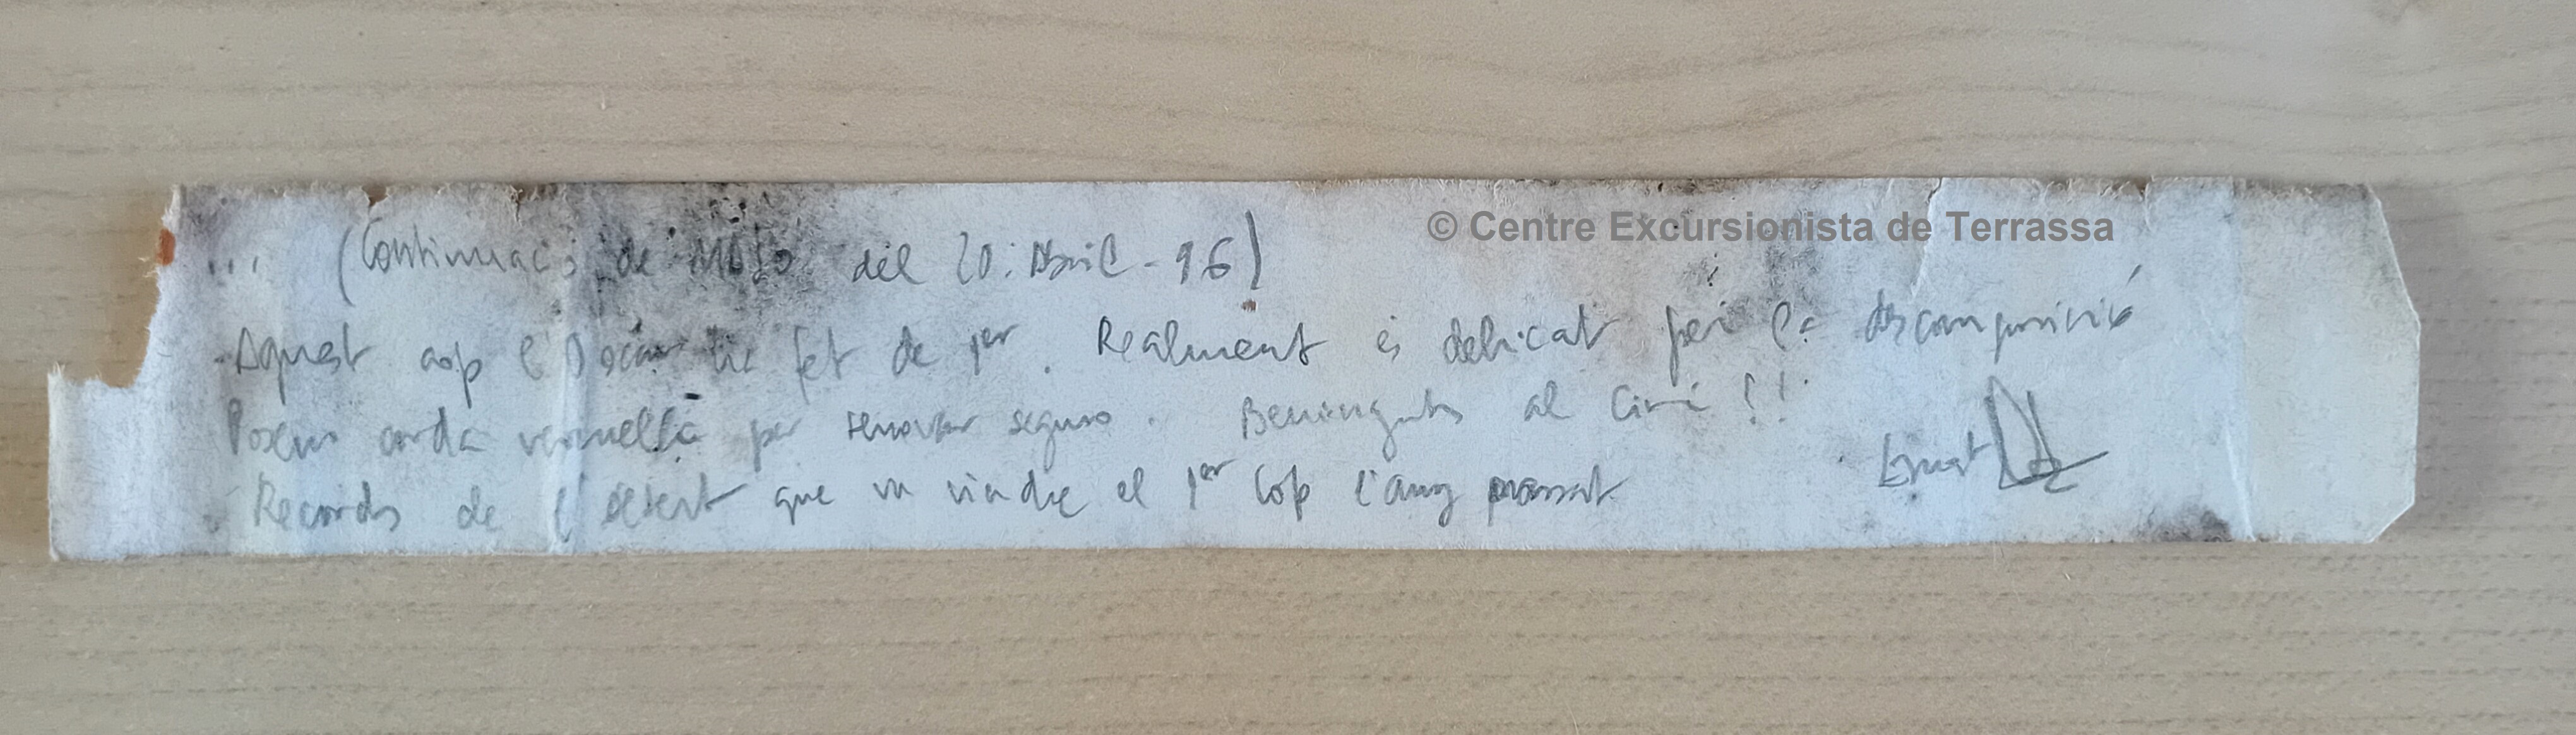 © Centre Excursionista de Terrassa
... (Continuació de del 20. Abril - 96)
Aquest cop l'Òscar ho fet de 1er. Realment és delicat per la descomposició
Posem corda vermella per remuntar segurs. Benvinguts al Cim !!
Records de l' que va vindre el 1er Cop l'any passat
Ernest